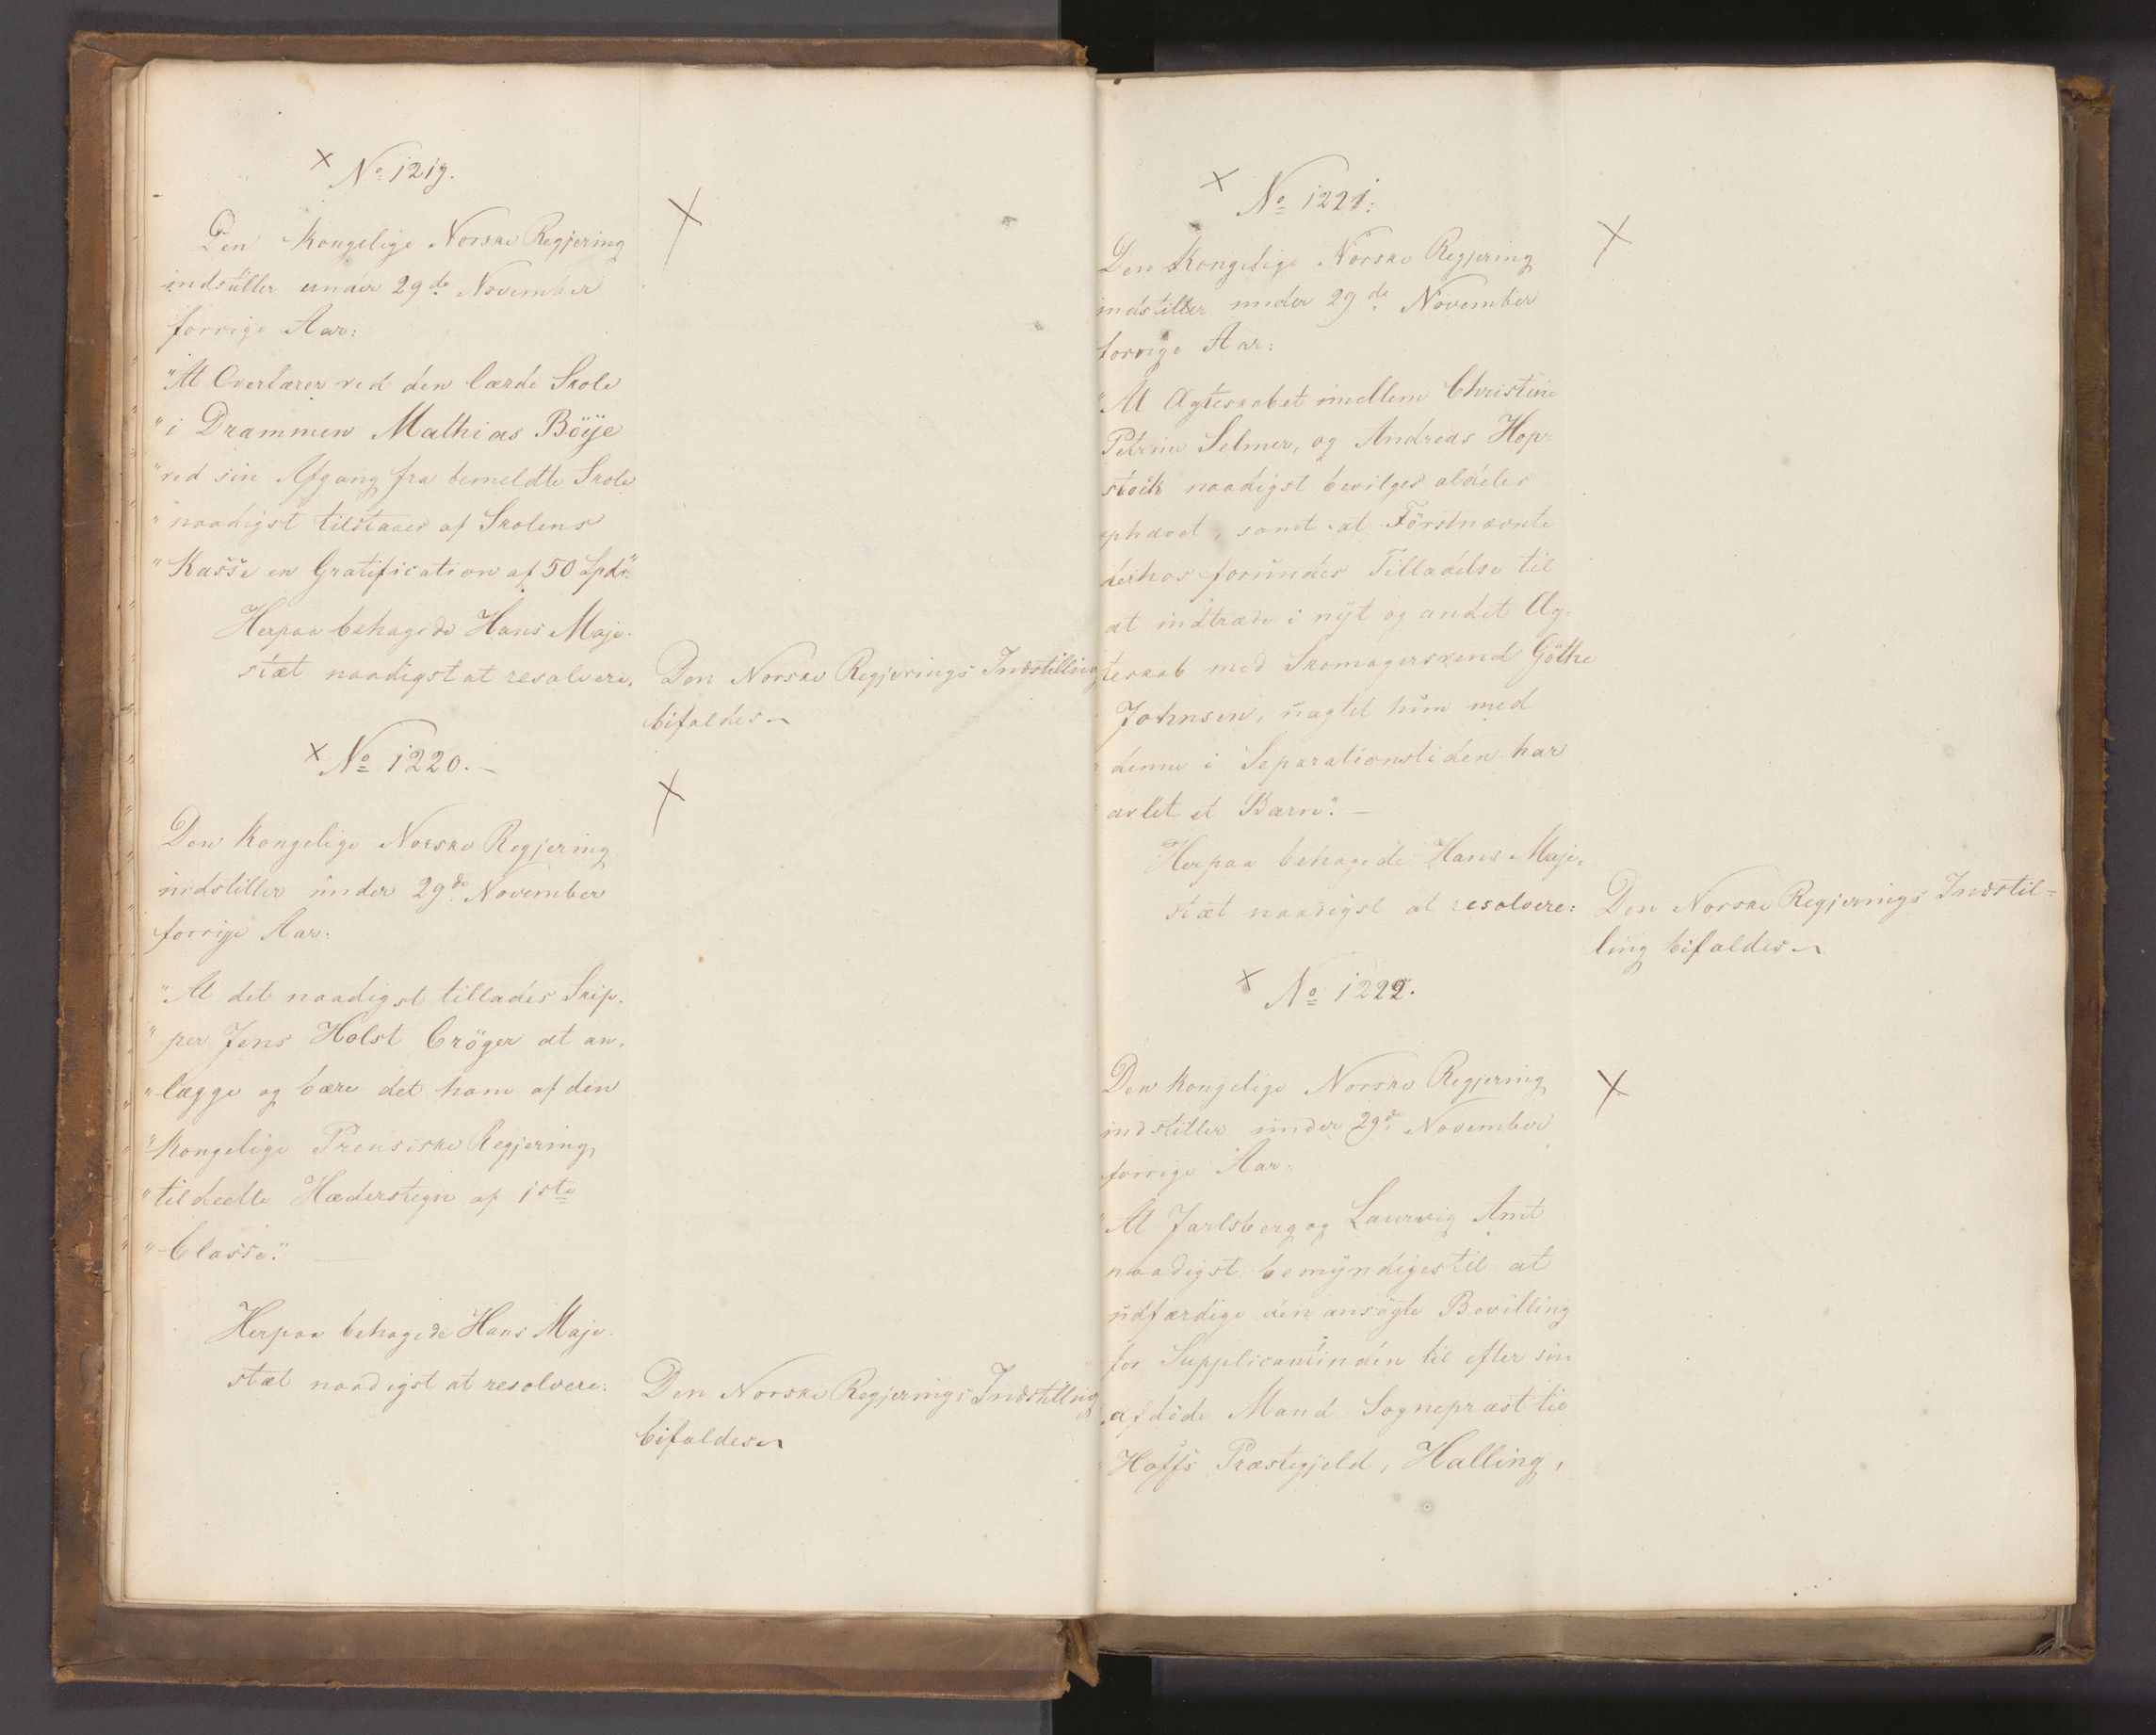 × No 1219.
Den Kongelige Norske Regjering
indstiller under 29de November
forrige Aar:
"At Overlærer ved den lærde Skole
"i Drammen Mathias Böÿe
"ved sin Afgang fra bemeldte Skole
"naadigst tilstaaes af Skolens
"Kasse en Gratification af 50 Spdr."
Herpaa behagede Hans Maje-
stæt naadigst at resolvere:
Den Norske Regjerings Indstilling
bifaldes
× No 1220.
Den Kongelige Norske Regjering
indstiller under 29de November
forrige Aar:
"At det naadigst tillades Skip-
"per Jens Holst Cröger at an-
"lægge og bære det ham af den
"Kongelige Preusiske Regjering
"tildeelte Hæderstegn af 1ste
"Classe."
Herpaa behagede Hans Maje-
stæt naadigst at resolvere:
Den Norske Regjerings Indstilling
bifaldes
× No 1221.
Den Kongelige Norske Regjering
indstiller under 29de November
forrige Aar:
"At Ægteskabet imellem Christine
Petrine Selmer, og Andreas Hop-
stock naadigst bevilges aldeles
ophævet, samt at Förstnævnte
derhos forundes Tilladelse til
at indtræde i nÿt og andet Æg-
teskab med Skomagersvend Göthe
Johnsen, uagtet hun med
denne i Separationstiden har
avlet et Barn."
Herpaa behagede Hans Maje-
stæt naadigst at resolvere:
Den Norske Regjerings Indstil-
ling bifaldes
× No 1222.
Den Kongelige Norske Regjering
indstiller under 29de November
forrige Aar:
"At Jarlsberg og Laurvig Amt
naadigst bemÿndiges til at
udfærdige den ansögte Bevilling
for Supplicantinden til efter sin
afdöde Mand Sognepræst til
Hoffs Præstegjeld, Halling,